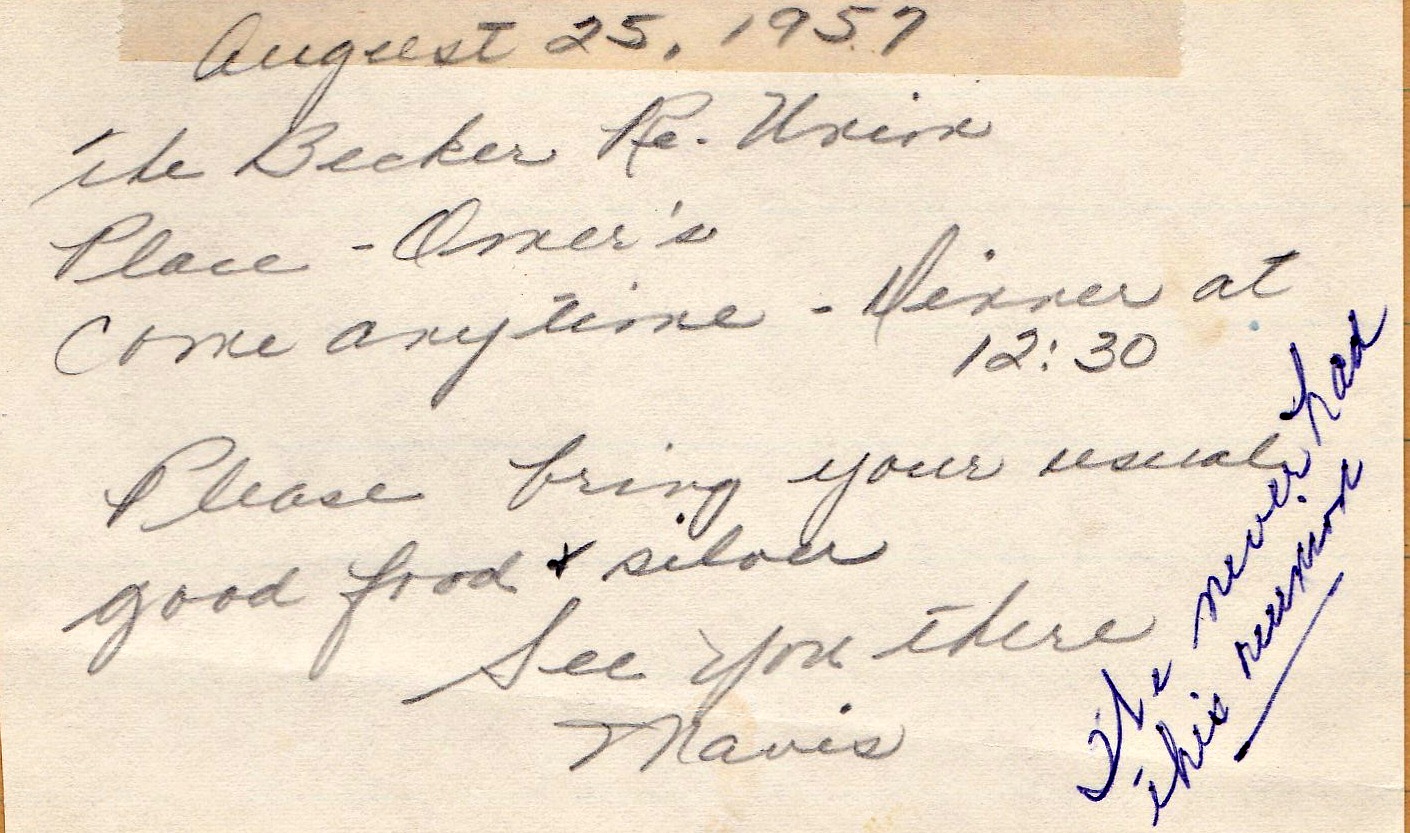 August 25, 1957
The Becker Re. Union
Place - Omer's
Come anytime - Dinner at
12:30
Please bring your usual
good food & silver
See you there
Mavis
We never had
this reunion